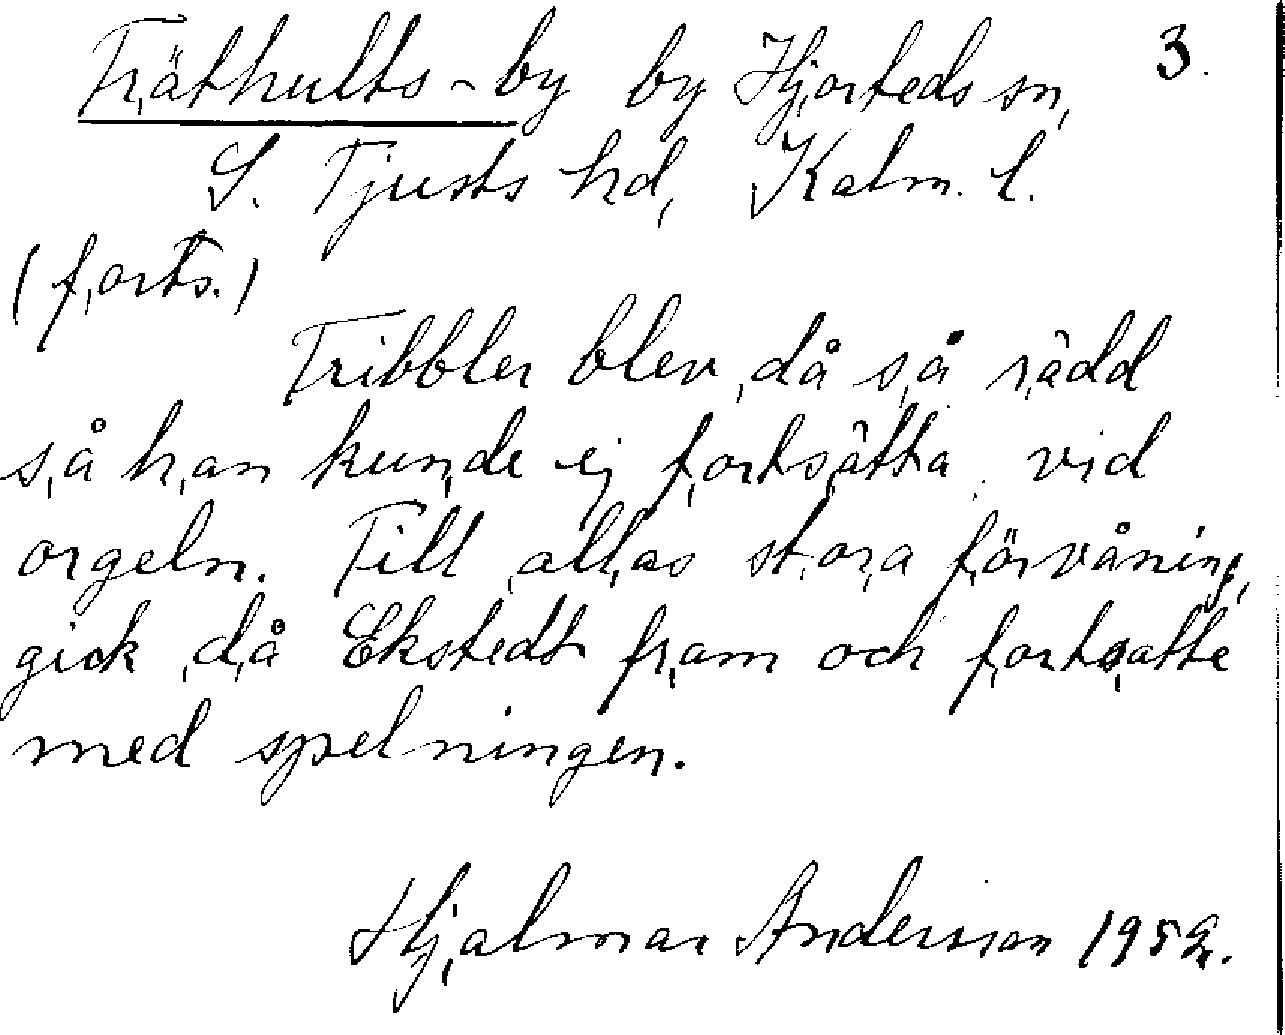 Fräthults-by by Hjorteds sn, 3.
S. Tjusts hd, Kalm. l.
(forts.)
Tribbler blev då så rädd
så han kunde ej fortsätta vid
orgeln. Till allas stora förvåning,
gick då Ekstedt fram och fortsatte
med spelningen.
Hjalmar Andersson 1952.